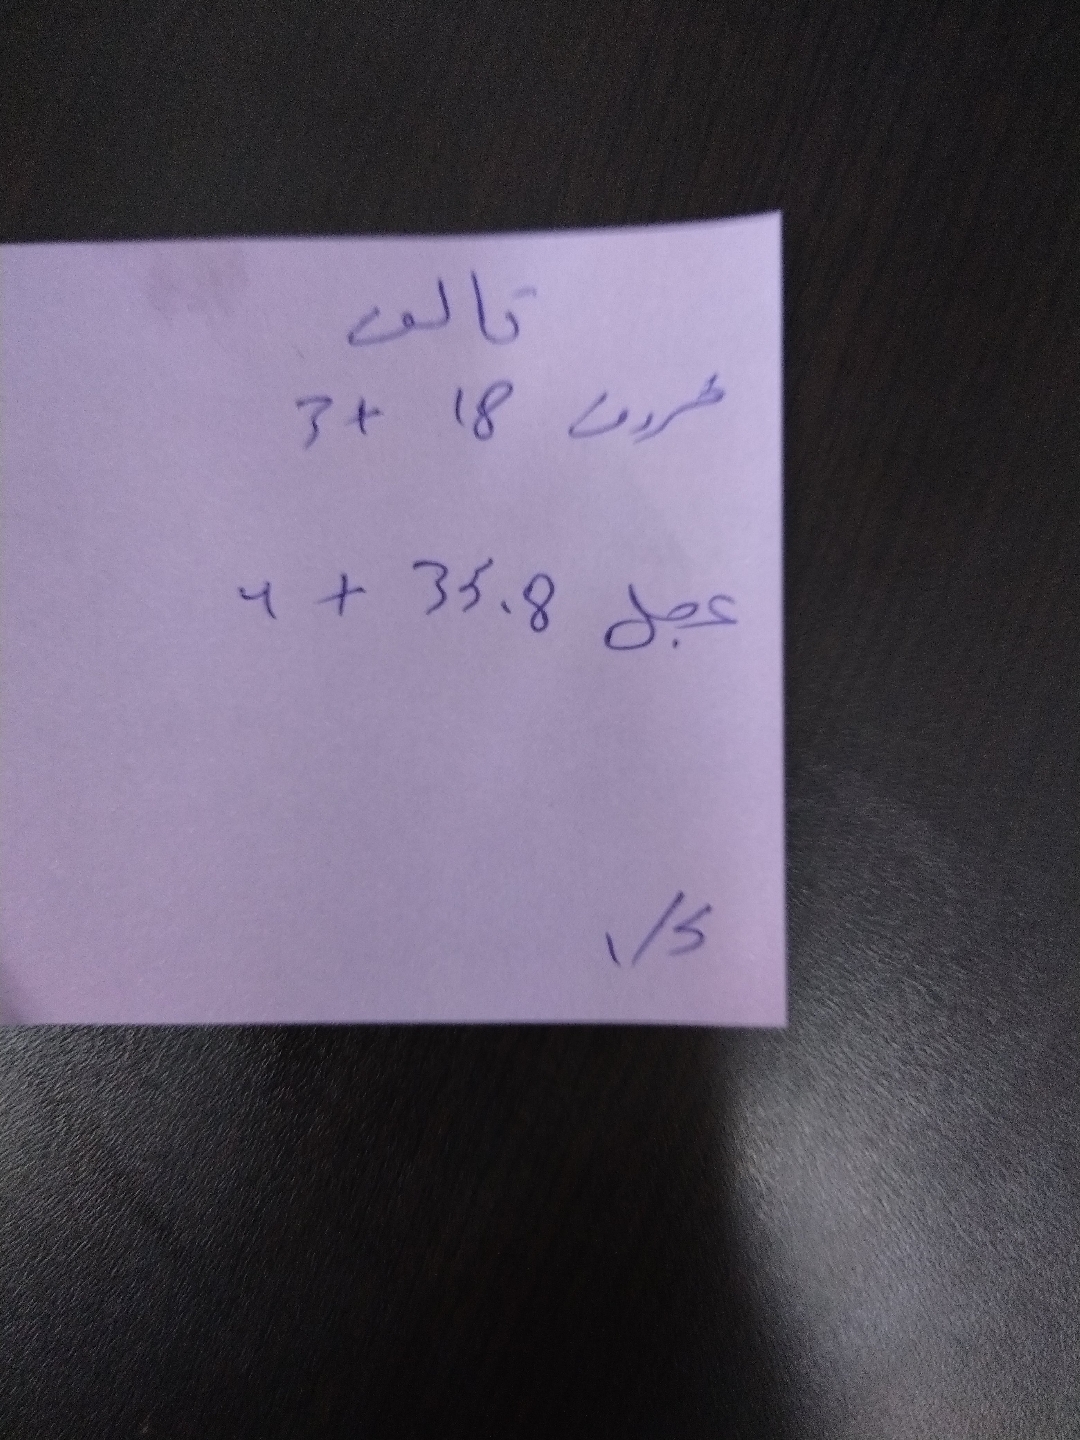 تالف
خروف 18 + 3
عجل 35.8 + 4
5/1